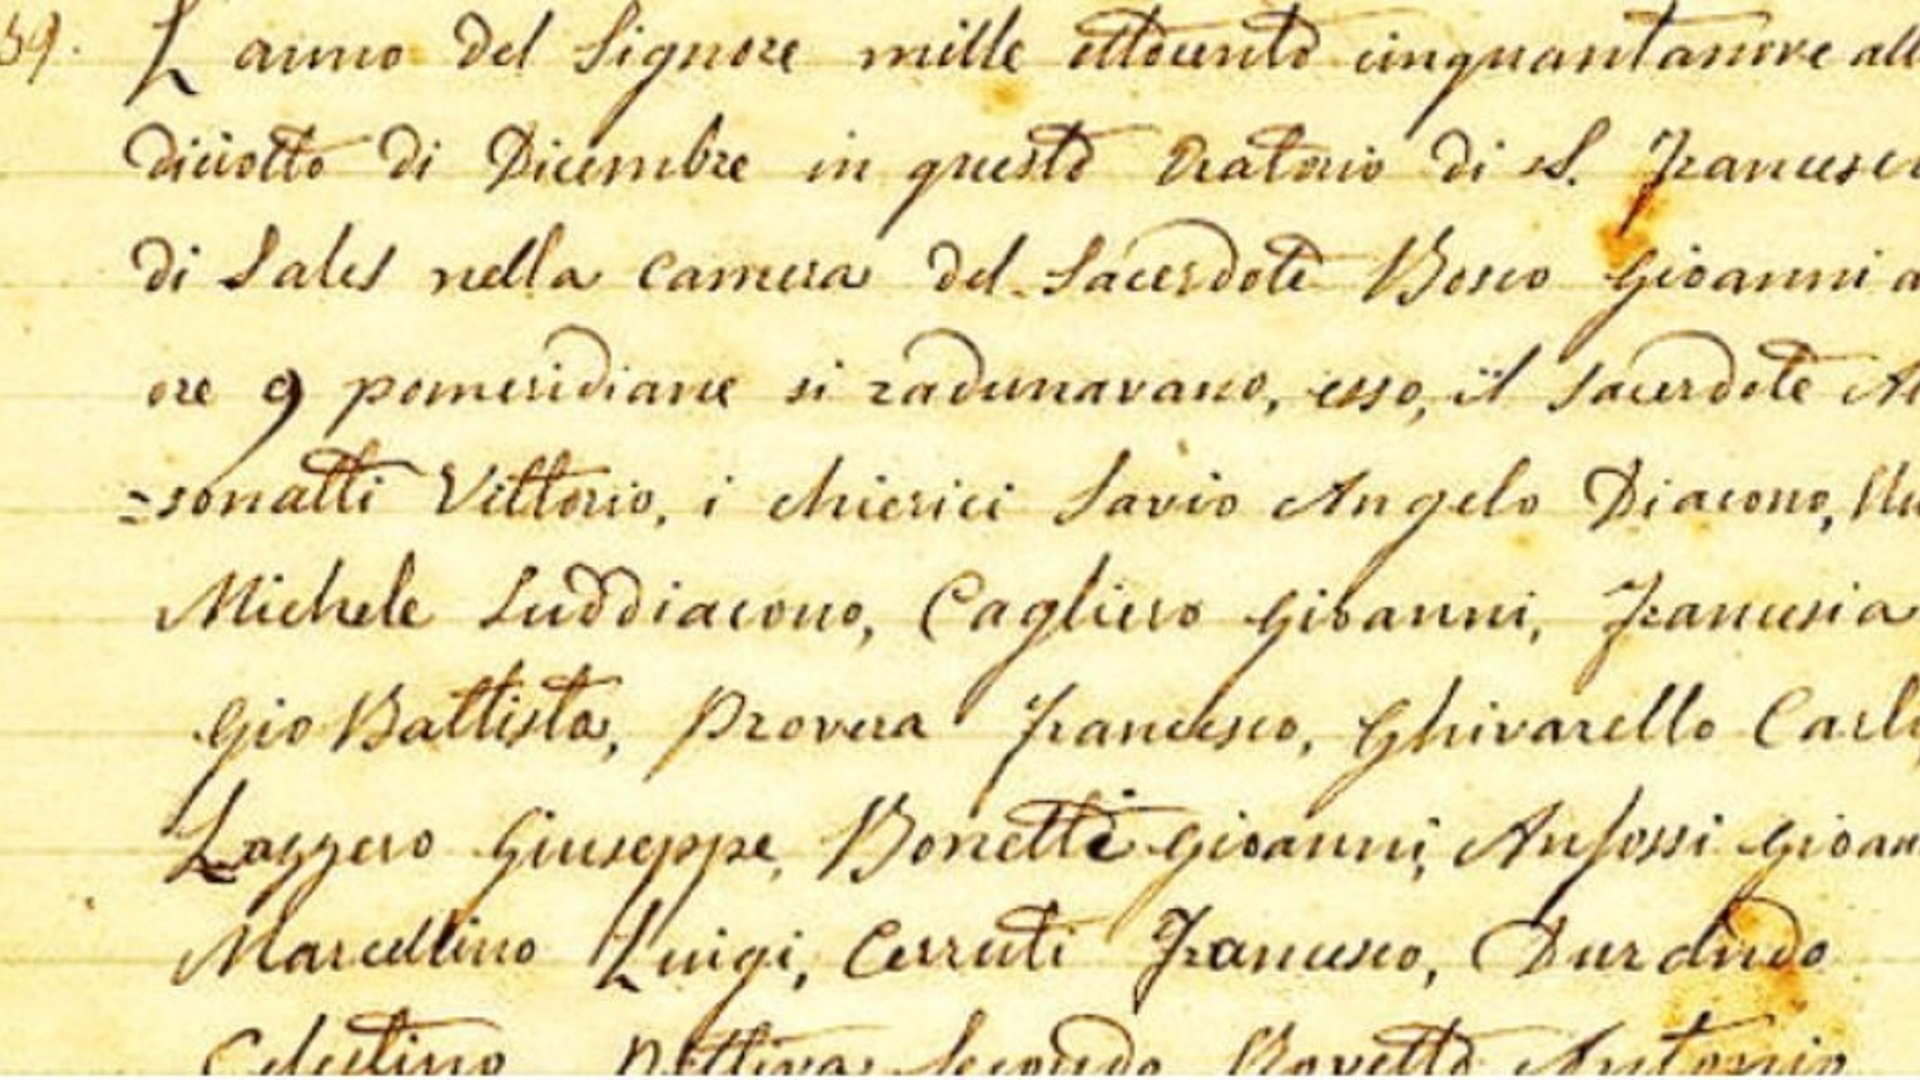 59. L anno del Signore mille ottocento cinquantanove alli
diciotto di Dicembre in questo Oratorio di S. Francesco
di Sales nella camera del Sacerdote Bosco Gioanni a
ore 9 pomeridiane si radunavano, esso, il Sacerdote Al
=sonatti Vittorio, i chierici Savio Angelo Diacono, Ru
Michele Suddiacono, Cagliero Gioanni, Francesia
Gio Battista, Provera Francesco, Ghivarello Carlo
Lazzero Giuseppe, Bonetti Gioanni, Anfossi Gioan
Marcellino Luigi, Cerruti Francesco, Durando
Celestino Pettiva Secondo Rovetto Antonio